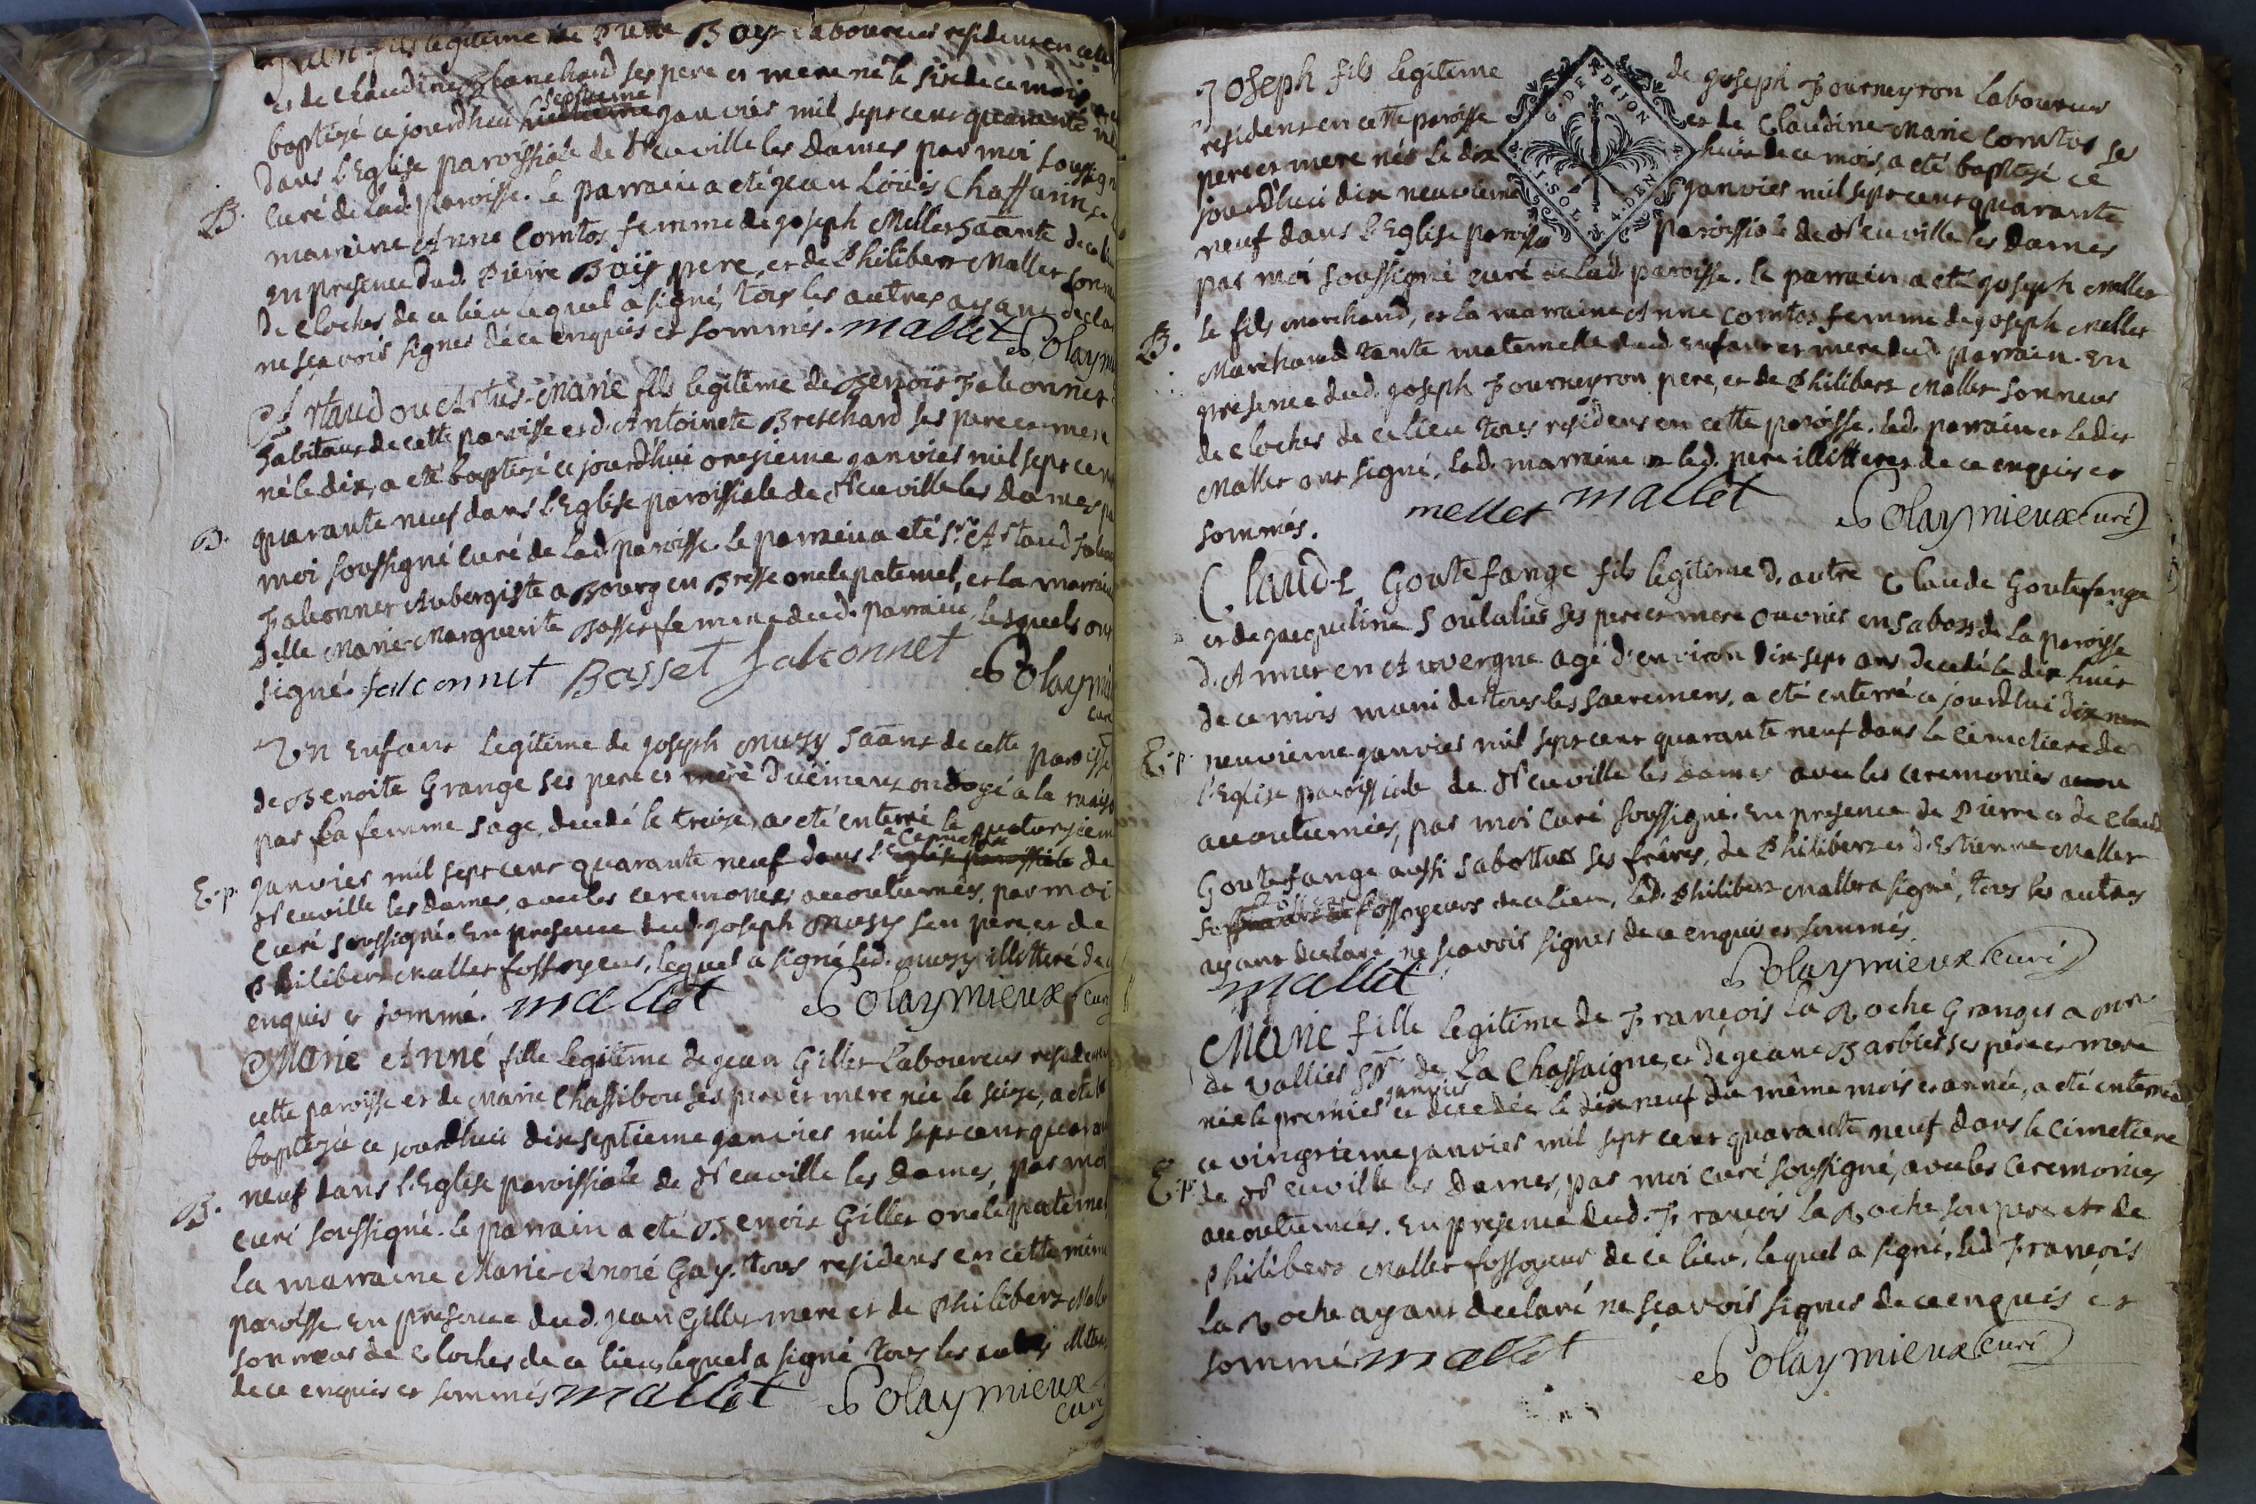 Jean fils legitime de Pierre Boyr laboureur resident en ce lieu
et de Claudine Blanchard ses pere et mere né le six de ce mois a été
baptizé ce jourdhui septieme janvier mil sept cent quarante neuf
dans l'Eglise paroissiale de St euville les Dames par moi soussigné
B. Curé de lad. paroisse. le parrain a eté jean Loüis Chaffurin, et la
marraine Anne Comtos femme de joseph Mellet
en presence dud. Pierre Boyr pere, et de Philibert Mallet sonneur
de cloches de ce lieu lequel a signé, tous les autres ayant declaré
ne sçavoir signer de ce enquis et sommés. mallet Polaymieux
Artaud ou Artus-Marie fils legitime de Benoist Falconnet
habitant de cette paroisse et d'Antoinete Brechard ses pere et mere
né le dix, a eté baptizé ce jourd'hui onzieme janvier mil sept cent
B. quarante neuf dans l'Eglise paroissiale de St euville les Dames par
moi soussigné curé de lad. paroisse. le parrain a eté Sr. Artaud
Falconnet Aubergiste a Bourg en Bresse oncle paternel, et la marraine
delle Marie-Marguerite Basset femme dud. parrain, lesquels ont
signé. falconnet Basset falconnet Polaymieux
curé
Un Enfant legitime de joseph Musy de cette paroisse
de Benoite Grange ses pere et mere duëment ondoyé a la maison
par la femme sage, decedé le treize, a eté enterré le quatorzieme
E.p. janvier mil sept cent quarante neuf dans le Cimetiere de
St euville les Dames, avec les ceremonies accoutumées, par moi
Curé soussigné. En presence dud. joseph Musy son pere, et de
Philibert Mallet fossoyeur, lequel a signé led. Musy illitteré de ce
enquis et sommé. mallet Polaymieux curé
Marie Anne fille legitime de jean Gillet Laboureur resident en
cette paroisse et de Marie Chassibou ses pere et mere née le seize, a eté
baptizée ce jourdhui dix septieme janvier mil sept cent quarante
B. neuf dans l'Eglise paroissiale de St euville les Dames, par moi
curé soussigné. le parrain a eté Benoit Gillet oncle paternel
la marraine Marie-Anne Gay. tous residens en cette même
paroisse. En presence dud. jean Gillet mere et de Philibert Mallet
sonneur de cloches de ce lieu, lequel a signé tous les autres
de ce enquis et sommés mallet Polaymieux
curé
Joseph fils legitime de joseph Fourneyron Laboureur
resident en cette paroisse et de Claudine Marie Comtos ses
G. DE DIJON
SOL 4 DEN
pere et mere nés le dix huit de ce mois, a eté baptizé ce
jourdhui dix neuvieme janvier mil sept cent quarante
neuf dans l'Eglise paroiss paroissiale de St euville les Dames
par moi soussigné curé de lad. paroisse. le parrain a eté joseph Mellet
B. le fils marchand, et la marraine Anne Comtos femme de joseph Mellet
Marchand tante maternelle dud. enfant et mere dud. parrain. En
presence dud. joseph Fourneyron pere, et de Philibert Mallet sonneur
de cloches de ce lieu tous residens en cette paroisse. led. parrain et ledit
Mallet ont signé, lad. marraine et led. pere illitteres de ce enquis et
sommés. mellet mallet Polaymieux curé
Claude Goutefange fils legitime d'autre Claude Goutefange
et de jacqueline Soulalier ses pere et mere ouvrier en sabots de la paroisse
d'Annet en Auvergne agé d'environ dix-sept ans decedé le dix huit
de ce mois muni de tous les sacremens, a eté enterré ce jourdhui dix
E.p. neuvieme janvier mil sept cent quarante neuf dans le Cimetiere de
l'Eglise paroissiale de St euville les Dames avec les ceremonies
accoutumées, par moi Curé soussigné. En presence de Pierre et de Claude
Goutefange aussi sabottiers ses freres, de Philibert et d'Estienne Mallet
fossoyeurs de ce lieu, led. Philibert Mallet a signé, tous les autres
ayant declaré ne sçavoir signer de ce enquis et sommés
mallet Polaymieux curé
Marie fille legitime de François La Roche Granger a Mr
de Vallier de La Chassaigne, et de jeane Barbier ses pere et mere
née le premier janvier et decedée le dix neuf du même mois et année, a eté enterrée
ce vingtieme janvier mil sept cent quarante neuf dans le Cimetiere
E.p. de St euville les Dames, par moi curé soussigné, avec les ceremonies
accoutumées. En presence dud. François La Roche son pere et de
Philibert Mallet fossoyeur de ce lieu, lequel a signé, led. François
La Roche ayant declaré ne sçavoir signer de ce enquis et
sommé mallet Polaymieux curé